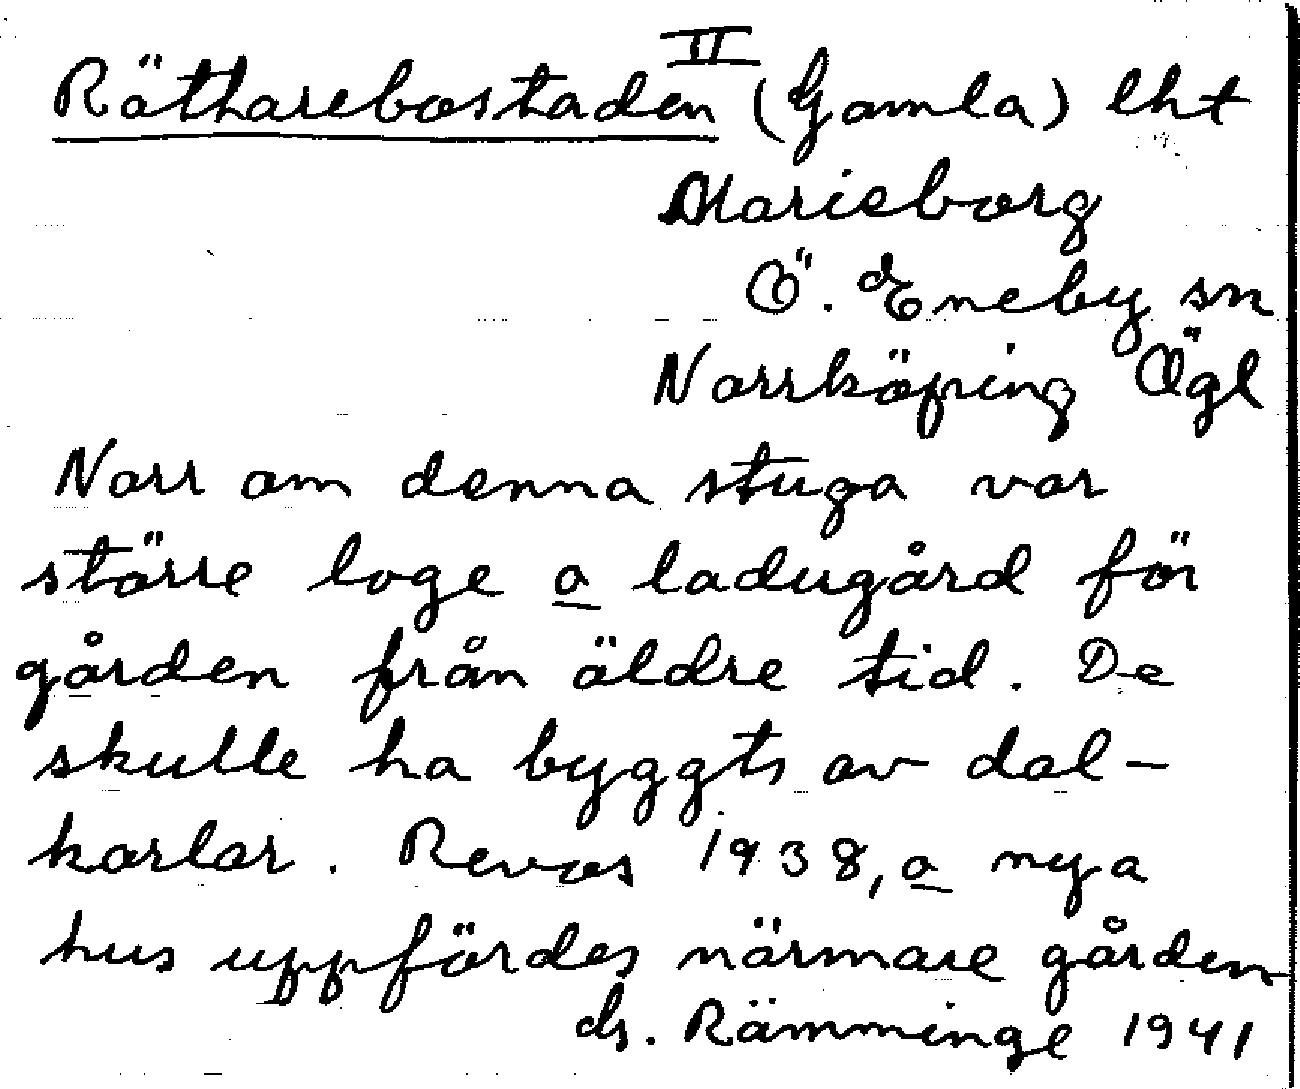 Rättarebostaden II (Gamla) lht
Marieborg
Ö. Eneby sn
Norrköping Ögl
Norr om denna stuga var
större loge o ladugård för
gården från äldre tid. De
skulle ha byggts av dal-
karlar. Revos 1938, o nya
hus uppfördes närmare gården
ds. Rämminge 1941